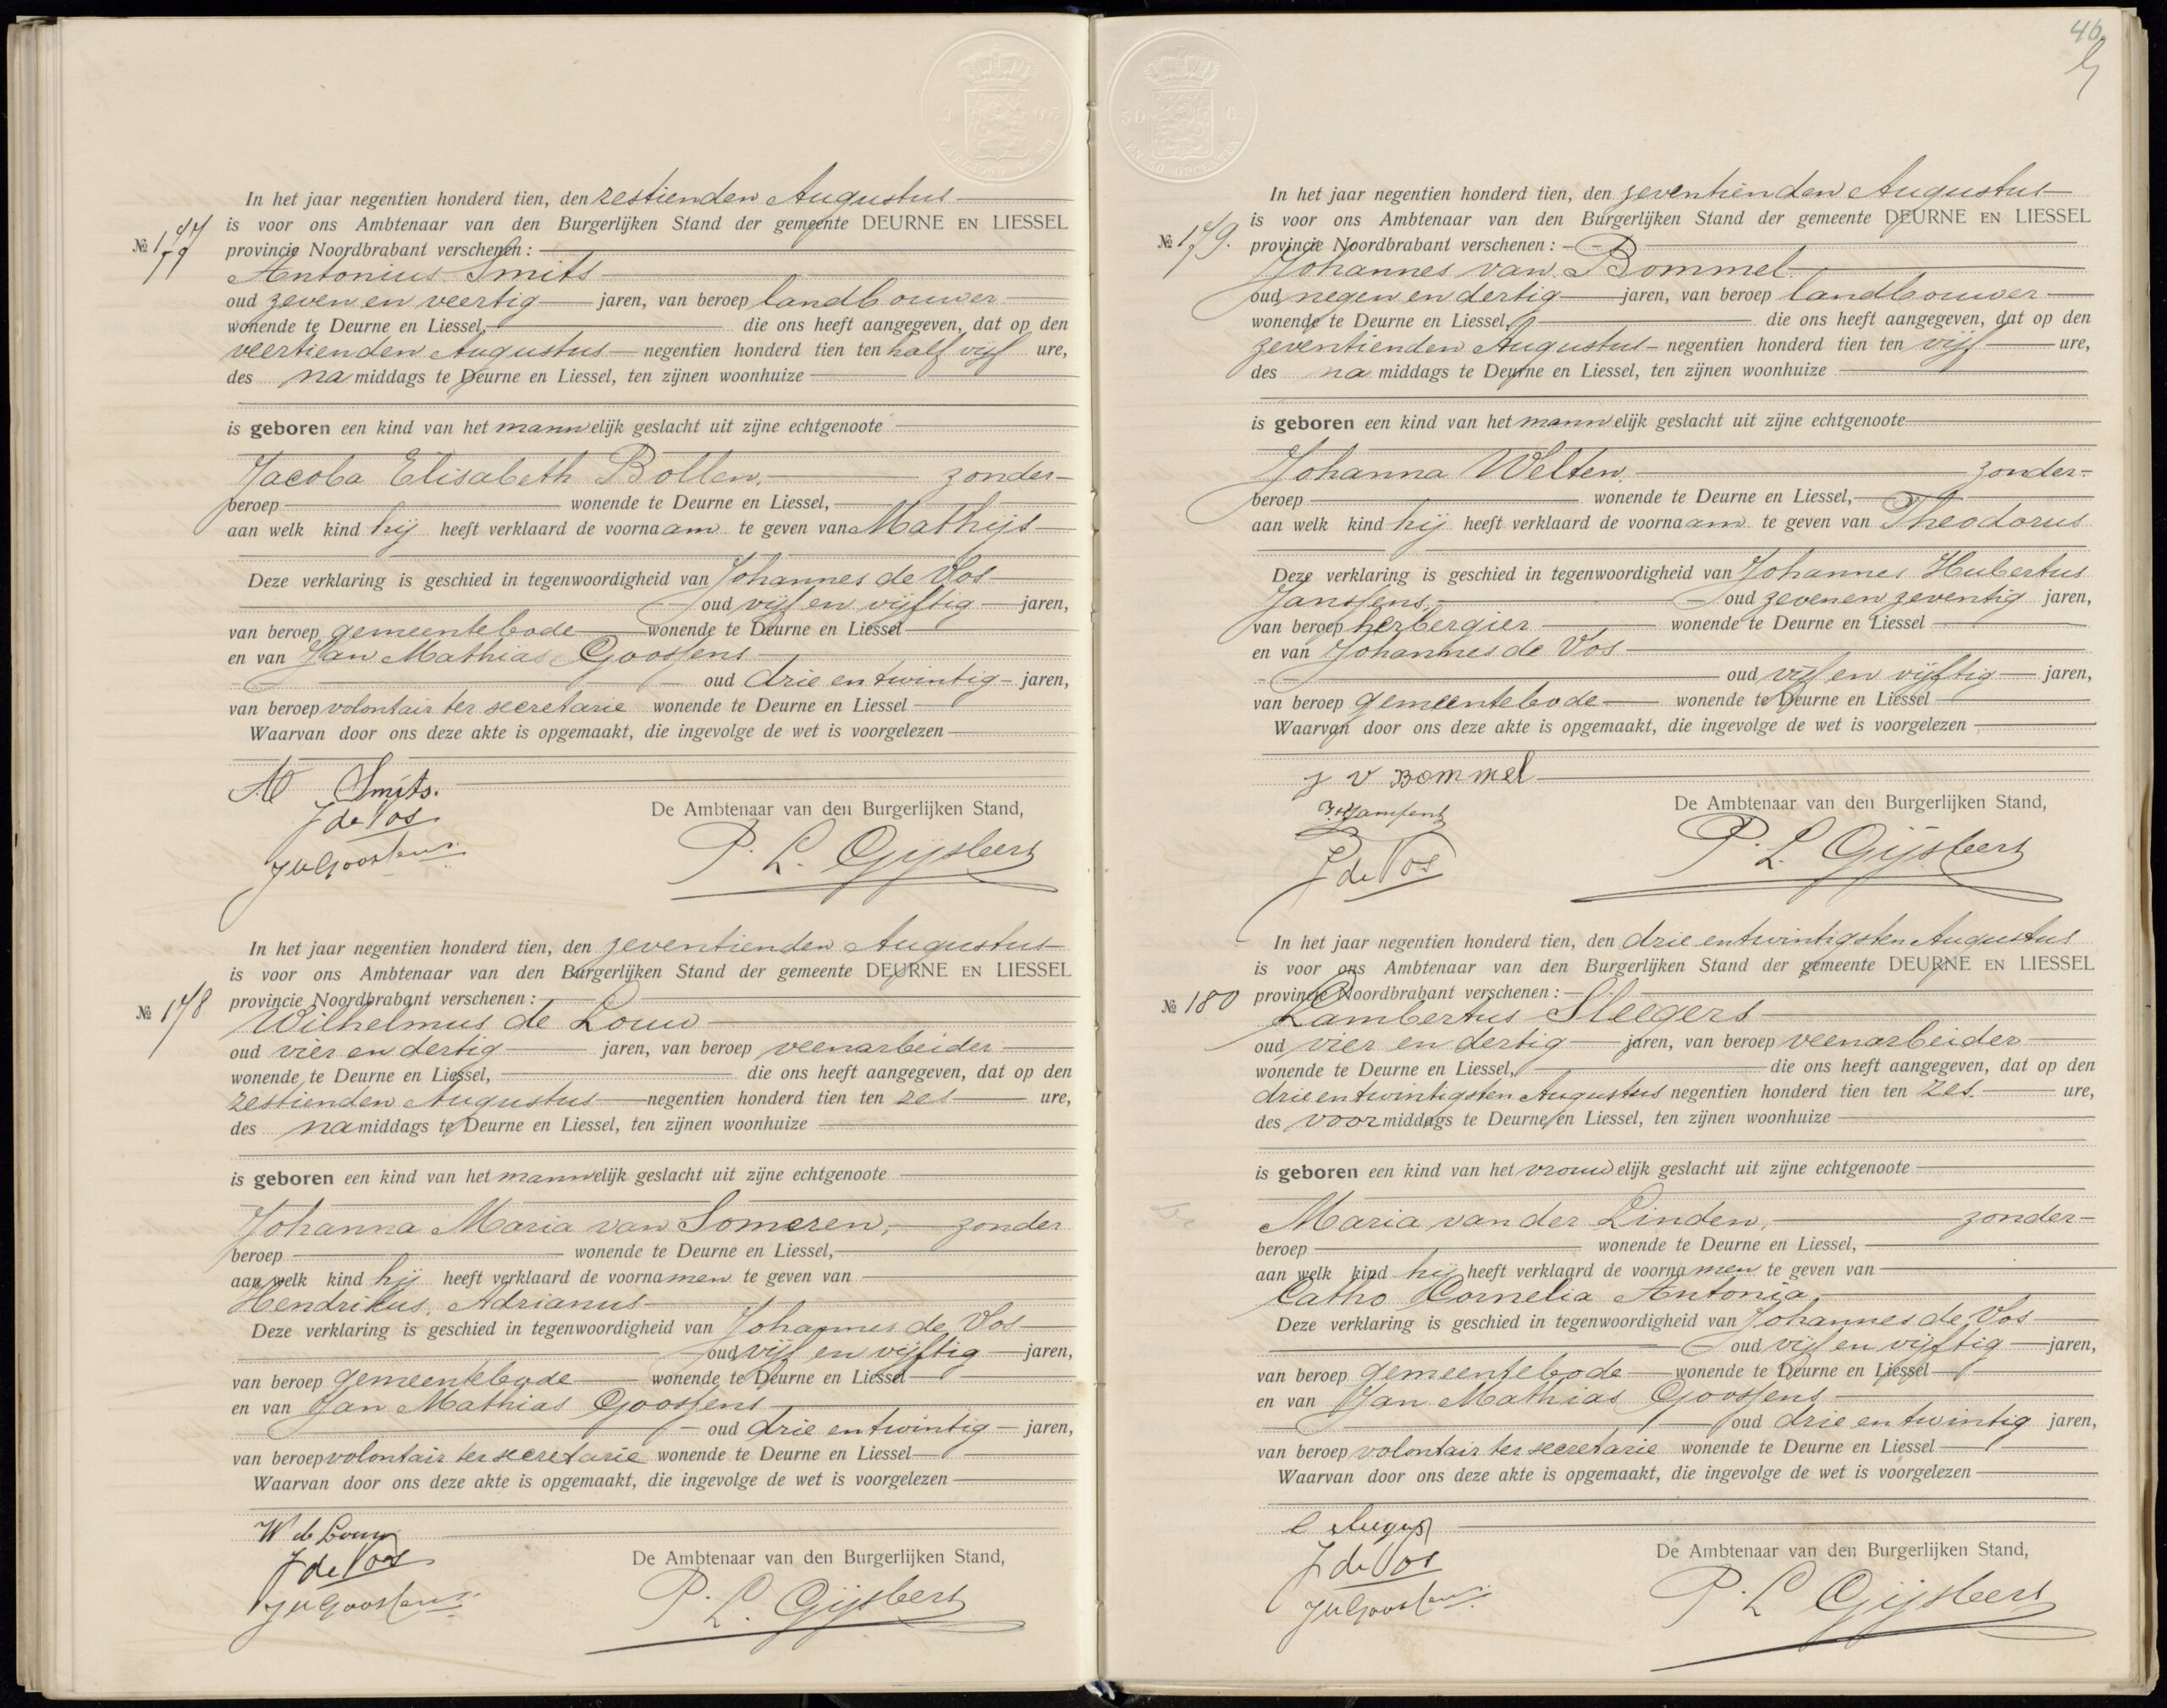 In het jaar negentien honderd tien, den zestienden Augustus
is voor ons Ambtenaar van den Burgerlijken Stand der gemeente DEURNE EN LIESSEL
№ 177 provincie Noordbrabant verschenen:
Antonius Smits
oud zeven en veertig jaren, van beroep landbouwer
wonende te Deurne en Liessel, die ons heeft aangegeven, dat op den
veertienden Augustus negentien honderd tien ten half vijf ure,
des na middags te Deurne en Liessel, ten zijnen woonhuize
is geboren een kind van het mannelijk geslacht uit zijne echtgenoote
Jacoba Elisabeth Bollen, zonder
beroep wonende te Deurne en Liessel,
aan welk kind hij heeft verklaard de voornaam te geven van Mathijs
Deze verklaring is geschied in tegenwoordigheid van Johannes de Vos
oud vijf en vijftig jaren,
van beroep gemeentebode wonende te Deurne en Liessel
en van Jan Mathias Goossens
oud drie en twintig jaren,
van beroep volontair ter secretarie wonende te Deurne en Liessel
Waarvan door ons deze akte is opgemaakt, die ingevolge de wet is voorgelezen
A Smits.
De Ambtenaar van den Burgerlijken Stand,
J de Vos
P. L. Gijsbers
JM Goossens
In het jaar negentien honderd tien, den zeventienden Augustus
is voor ons Ambtenaar van den Burgerlijken Stand der gemeente DEURNE EN LIESSEL
№ 178 provincie Noordbrabant verschenen:
Wilhelmus de Louw
oud vier en dertig jaren, van beroep veenarbeider
wonende te Deurne en Liessel, die ons heeft aangegeven, dat op den
zestienden Augustus negentien honderd tien ten zes ure,
des na middags te Deurne en Liessel, ten zijnen woonhuize
is geboren een kind van het mannelijk geslacht uit zijne echtgenoote
Johanna Maria van Someren, zonder
beroep wonende te Deurne en Liessel,
aan welk kind hij heeft verklaard de voornamen te geven van
Hendrikus Adrianus
Deze verklaring is geschied in tegenwoordigheid van Johannes de Vos
oud vijf en vijftig jaren,
van beroep gemeentebode wonende te Deurne en Liessel
en van Jan Mathias Goossens
oud drie en twintig jaren,
van beroep volontair ter secretarie wonende te Deurne en Liessel
Waarvan door ons deze akte is opgemaakt, die ingevolge de wet is voorgelezen
W de Louw
De Ambtenaar van den Burgerlijken Stand,
J de Vos
P. L. Gijsbers
JM Goossens
46
In het jaar negentien honderd tien, den zeventienden Augustus
is voor ons Ambtenaar van den Burgerlijken Stand der gemeente DEURNE EN LIESSEL
№ 179. provincie Noordbrabant verschenen:
Johannes van Bommel
oud negen en dertig jaren, van beroep landbouwer
wonende te Deurne en Liessel, die ons heeft aangegeven, dat op den
zeventienden Augustus negentien honderd tien ten vijf ure,
des na middags te Deurne en Liessel, ten zijnen woonhuize
is geboren een kind van het mannelijk geslacht uit zijne echtgenoote
Johanna Welten, zonder
beroep wonende te Deurne en Liessel,
aan welk kind hij heeft verklaard de voornaam te geven van Theodorus
Deze verklaring is geschied in tegenwoordigheid van Johannes Hubertus
Janssens, oud zeven en zeventig jaren,
van beroep herbergier wonende te Deurne en Liessel
en van Johannes de Vos
oud vijf en vijftig jaren,
van beroep gemeentebode wonende te Deurne en Liessel
Waarvan door ons deze akte is opgemaakt, die ingevolge de wet is voorgelezen
J v Bommel
De Ambtenaar van den Burgerlijken Stand,
JH Jansens
P. L. Gijsbers
J de Vos
In het jaar negentien honderd tien, den drie en twintigsten Augustus
is voor ons Ambtenaar van den Burgerlijken Stand der gemeente DEURNE EN LIESSEL
№ 180 provincie Noordbrabant verschenen:
Lambertus Sleegers
oud vier en dertig jaren, van beroep veenarbeider
wonende te Deurne en Liessel, die ons heeft aangegeven, dat op den
drie en twintigsten Augustus negentien honderd tien ten zes ure,
des voor middags te Deurne en Liessel, ten zijnen woonhuize
is geboren een kind van het vrouwelijk geslacht uit zijne echtgenoote
Maria van der Linden, zonder
beroep wonende te Deurne en Liessel,
aan welk kind hij heeft verklaard de voornamen te geven van
Catho Cornelia Antonia,
Deze verklaring is geschied in tegenwoordigheid van Johannes de Vos
oud vijf en vijftig jaren,
van beroep gemeentebode wonende te Deurne en Liessel
en van Jan Mathias Goossens
oud drie en twintig jaren,
van beroep volontair ter secretarie wonende te Deurne en Liessel
Waarvan door ons deze akte is opgemaakt, die ingevolge de wet is voorgelezen
De Ambtenaar van den Burgerlijken Stand,
J de Vos
P. L. Gijsbers
JM Goossens